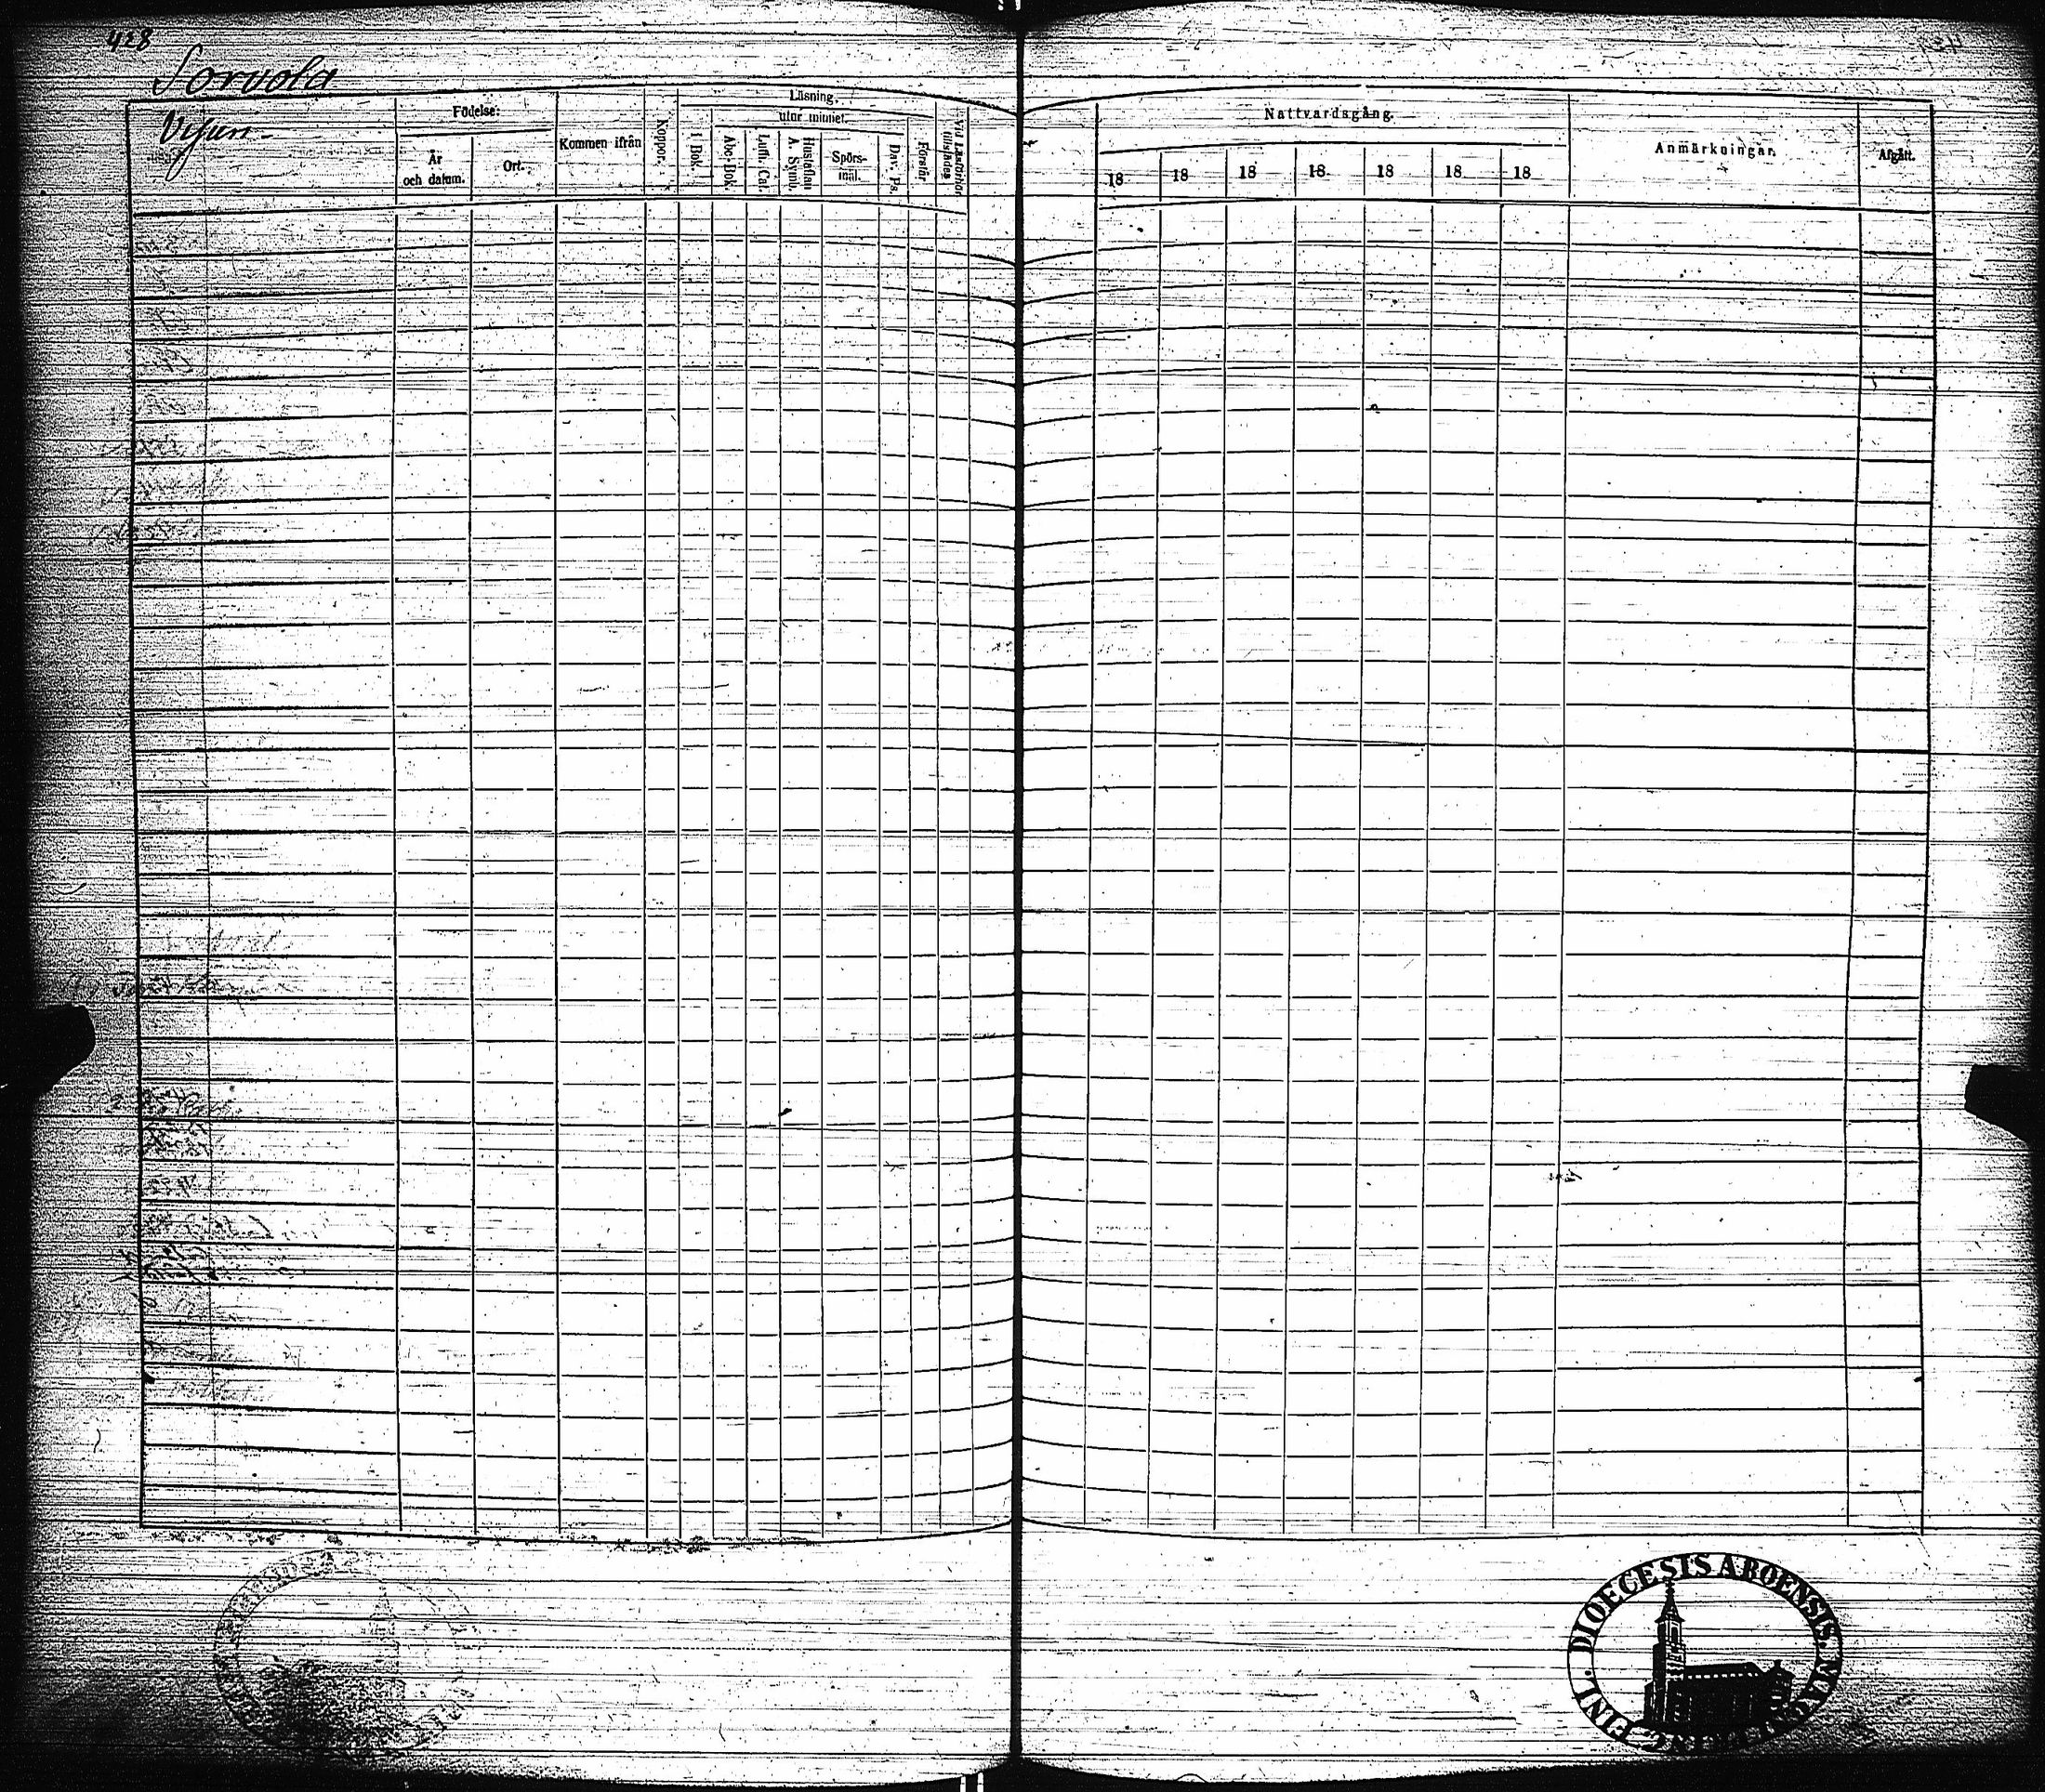 428
Sorvola
Födelse:
Kommen ifrån
Koppor.
Läsning.
utur minnet.
År
och datum.
Ort.
i Bok.
Abc-Bok.
Luth. Cat.
Hustaflan
A. Symb.
Spörs-
mål.
Dav. Ps.
Förstår
Vid Läsförhör
tillstädes
Nattvardsgång.
18
18
18
18
18
18
18
Anmärkningar.
Afgått.
DIOECESIS ABOENSIS. MAGNI DUC. FINL.